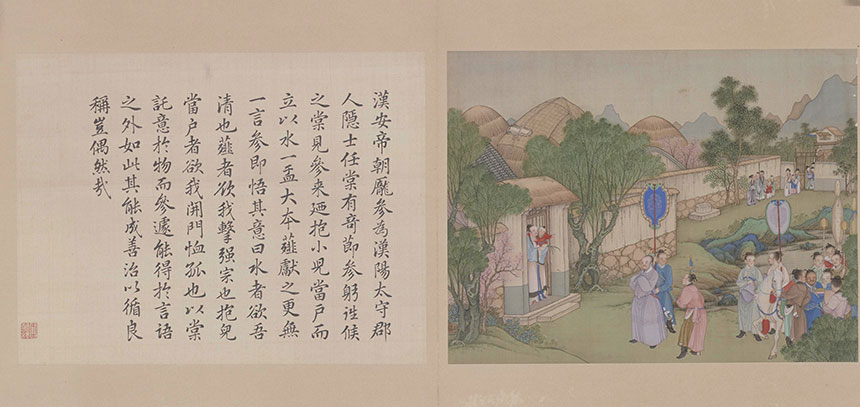 漢安帝朝龐參為漢陽太守郡
人隱士任棠有竒節參躬詣候
之棠見參来廼抱小児當戶而
立以水一盂大本薤獻之更無
一言參即悟其意曰水者欲吾
清也薤者欲我擊强宗也抱兒
當户者欲我開門恤孤也以棠
託意於物而參遽能得於言語
之外如此其能成善治以循良
稱豈偶然哉